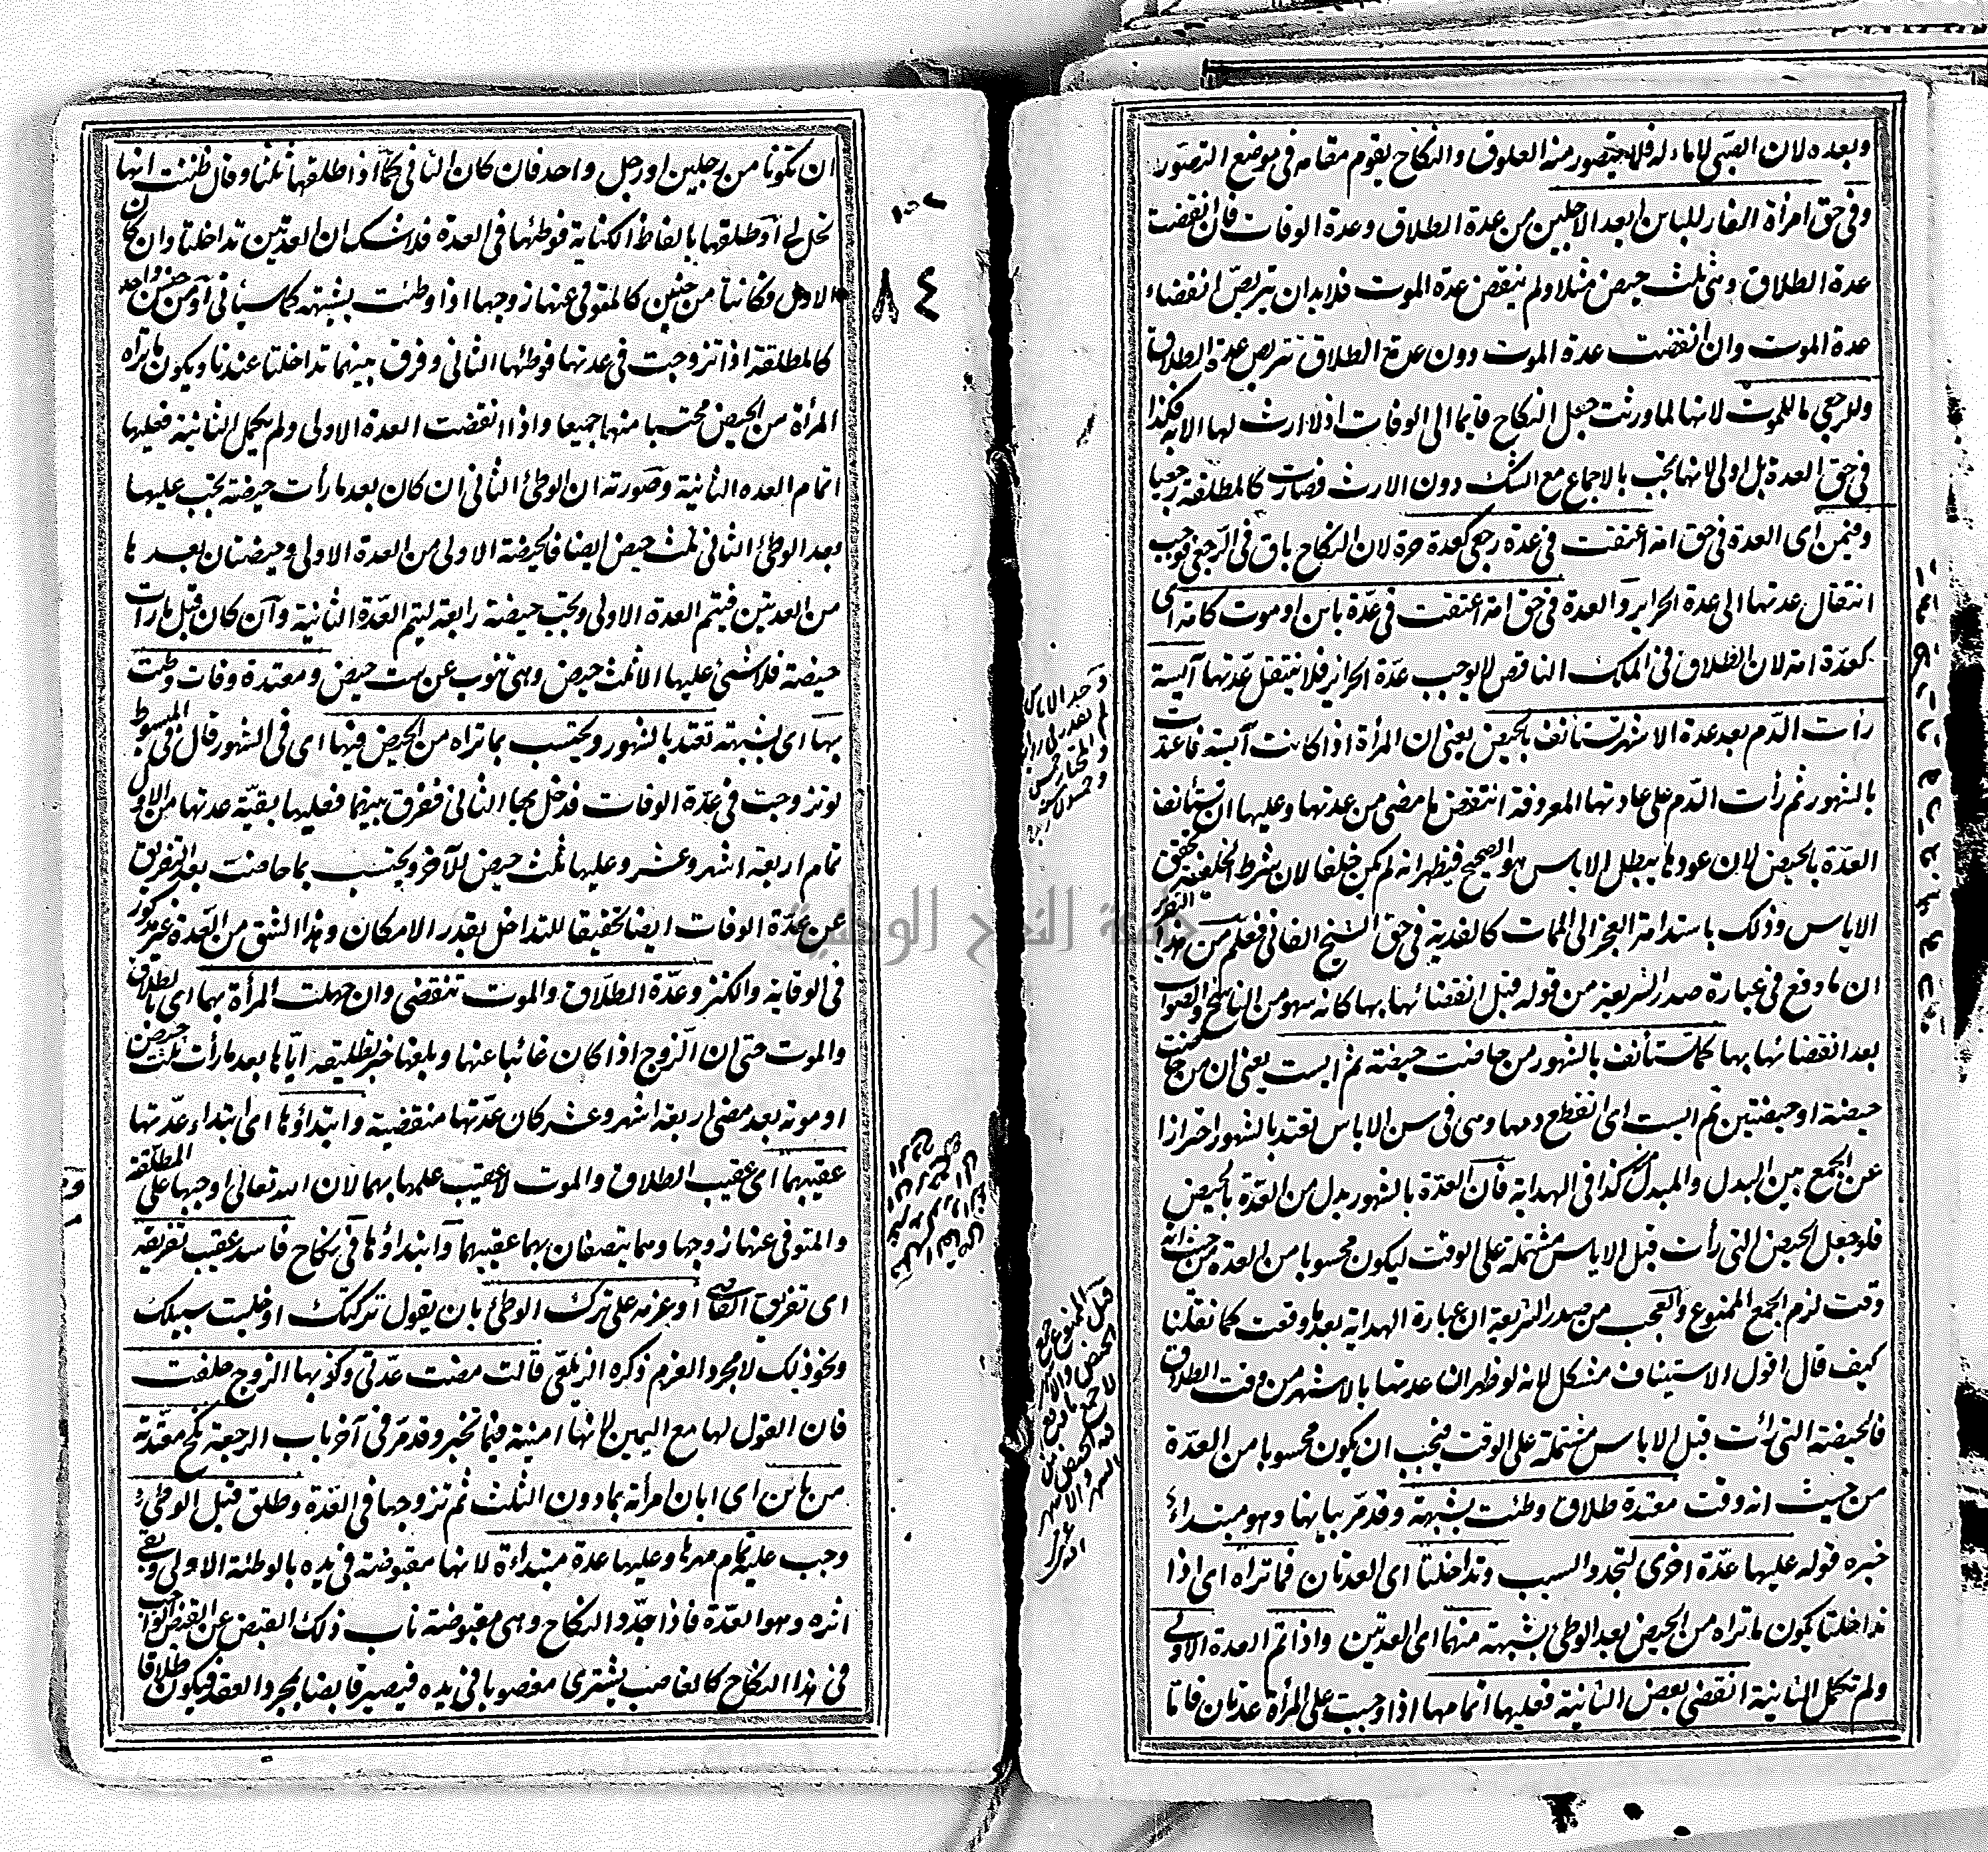 وبعده لان الصبي لا ماء له فلا يتصور منه العلوق والنكاح يقوم مقامه في موضع التصور
وفي حق امرأة الفار للباين ابعد الاجلين من عدة الطلاق وعدة الوفات فان انقضت
عدة الطلاق وهي ثلث حيض مثلا ولم ينقض عدة الموت فلا بد ان يتربص انقضاء
عدة الموت وان انقضت عدة الموت دون عدة الطلاق تتربص عدة الطلاق
وللرجعي ما للموت لانها لما ورثت جعل النكاح قايما الى الوفات اذ لا ارث لها الا به فكذا
في حق العدة بل اولى لانها تجب بالاجماع مع الشك دون الارث فصارت كالمطلقة رجعيا
وفيمن اى العدة في حق امة اعتقت في عدة رجعي كعدة حرة لان النكاح باق في الرجعي فوجب
انتقال عدتها الى عدة الحراير والعدة في حق امة اعتقت في عدة باين او موت كامة اى
كعدة امة لان الطلاق في الملك الناقص لا يوجب عدة الحرائر فلا ينتقل عدتها آيسة
رأت الدم بعد عدة الاشهر تستأنف بالحيض يعنى ان المرأة اذا كانت آيسة فاعتدت
بالشهور ثم رأت الدم على عادتها المعروفة انتقض ما مضى من عدتها وعليها ان تستأنف
العدة بالحيض لان عودها يبطل الاياس هو الصحيح فيظهر انه لم يكن خلفا لان شرط الخلف تحقق
الاياس وذلك باستدامة العجز الى الممات كالفدية في حق الشيخ الفاني فعلم من هذا التقرير
ان ما وقع في عبارة صدر الشريعة من قوله قبل انقضائها بها كانه سهو من الناسخ والصواب
بعد انقضائها بها كما تستأنف بالشهور من حاضت حيضة ثم ايست يعنى ان من حاضت
حيضة او حيضتين ثم ايست اى انقطع دمها وهي في سن الاياس تعتد بالشهور احترازا
عن الجمع بين البدل والمبدل منه كذا في الهداية فان العدة بالشهور بدل من العدة بالحيض
فلو جعل الحيض التى رأت قبل الاياس مشتملة على الوقت ليكون محسوبا من العدة من حيث انه
وقت لزم الجمع الممنوع والعجب من صدر الشريعة ان عبارة الهداية بعد ما وقعت كما نقلنا
كيف قال اقول الاستيناف مشكل لانه لو ظهر ان عدتها بالاشهر من وقت الطلاق
فالحيضة التى رأت قبل الاياس مشتملة على الوقت فيجب ان يكون محسوبا من العدة
من حيث انه وقت معتدة طلاق وطئت بشبهة وقد مر بيانها وهو مبتداء
خبره قوله عليها عدة اخرى لتجدد السبب وتداخلتا اى العدتان فما تراه اى اذا
تداخلتا يكون ما تراه من الحيض بعد الوطئ بشبهة منهما اى العدتين واذا تم العدة الاولى
ولم تكمل الثانية انقضى بعض الثانية فعليها اتمامها اذا وجبت على المرأة عدتان فاما
ان تكونا من رجلين او رجل واحد فان كان الثاني كما اذا طلقها ثلثا وقال ظننت انها
تحل لي او طلقها بالفاظ الكناية فوطئها في العدة فلا شك ان العدتين تداخلتا وان كان
الاول وكانتا من جنسين كالمتوفى عنها زوجها اذا وطئت بشبهة كما سيأتي او من جنس واحد
كالمطلقة اذا تزوجت في عدتها فوطئها الثاني وفرق بينهما تداخلتا عندنا ويكون ما تراه
المرأة من الحيض محتسبا منهما جميعا واذا انقضت العدة الاولى ولم تكمل الثانية فعليها
اتمام العده الثانية وصورته ان الوطئ الثاني ان كان بعد ما رأت حيضة تجب عليها
وبعد الوطئ الثاني ثلث حيض ايضا فالحيضة الاولى من العدة الاولى وحيضتان بعدها
من العدتين فيتم العدة الاولى وتجب حيضة رابعة ليتم العدة الثانية وان كان قبل ما رأت
حيضة فلا شئ عليها الا ثلث حيض وهي تنوب عن ست حيض ومعتدة وفات وطئت
بها اى بشبهة تعتد بالشهور ويحتسب بما تراه من الحيض فيها اى في الشهور قال في المبسوط
لو تزوجت في عدة الوفات فدخل بها الثاني ففرق بينهما فعليها بقية عدتها من الاول
تمام اربعة اشهر وعشر وعليها ثلث حيض للآخر ويحتسب بما حاضت بعد التفريق
من عدة الوفات ايضا تحقيقا للتداخل بقدر الامكان وهذا الشق من العدة غير مذكور
في الوقاية والكنز وعدة الطلاق والموت تنقضى وان جهلت المرأة بهما اى بالطلاق
والموت حتى ان الزوج اذا كان غائبا عنها وبلغها خبر تطليقه اياها بعد ما رأت ثلث حيض
او موته بعد مضى اربعة اشهر وعشر كان عدتها منقضية وابتداؤها اى ابتداء عدتها
عقيبهما اى عقيب الطلاق والموت لا عقيب علمها بهما لان الله تعالى اوجبها على المطلقة
والمتوفى عنها زوجها وهما يتصفان بهما عقيبهما وابتداؤها في نكاح فاسد عقيب تفريقه
اى تفريق القاضي او عزمه على ترك الوطئ بان يقول تركتك او خليت سبيلك
ونحو ذلك لا مجرد العزم ذكره الزيلعي قالت مضت عدتي وكذبها الزوج حلفت
فان القول لها مع اليمين لانها امينة فيما تخبر وقد مر في آخر باب الرجعة نكح معتدته
من باين اى ابان امرأته بما دون الثلث ثم تزوجها في العدة وطلق قبل الوطئ
وجب عليه تمام مهرها وعليها عدة مبتداءة لانها مقبوضة في يده بالوطئة الاولى وبقى
اثره وهو العدة فاذا جدد النكاح وهي مقبوضة ناب ذلك القبض عن القبض الواجب
في هذا النكاح كالغاصب يشترى مغصوبا في يده فيصير قابضا بمجرد العقد فيكون طلاقا
٨٤